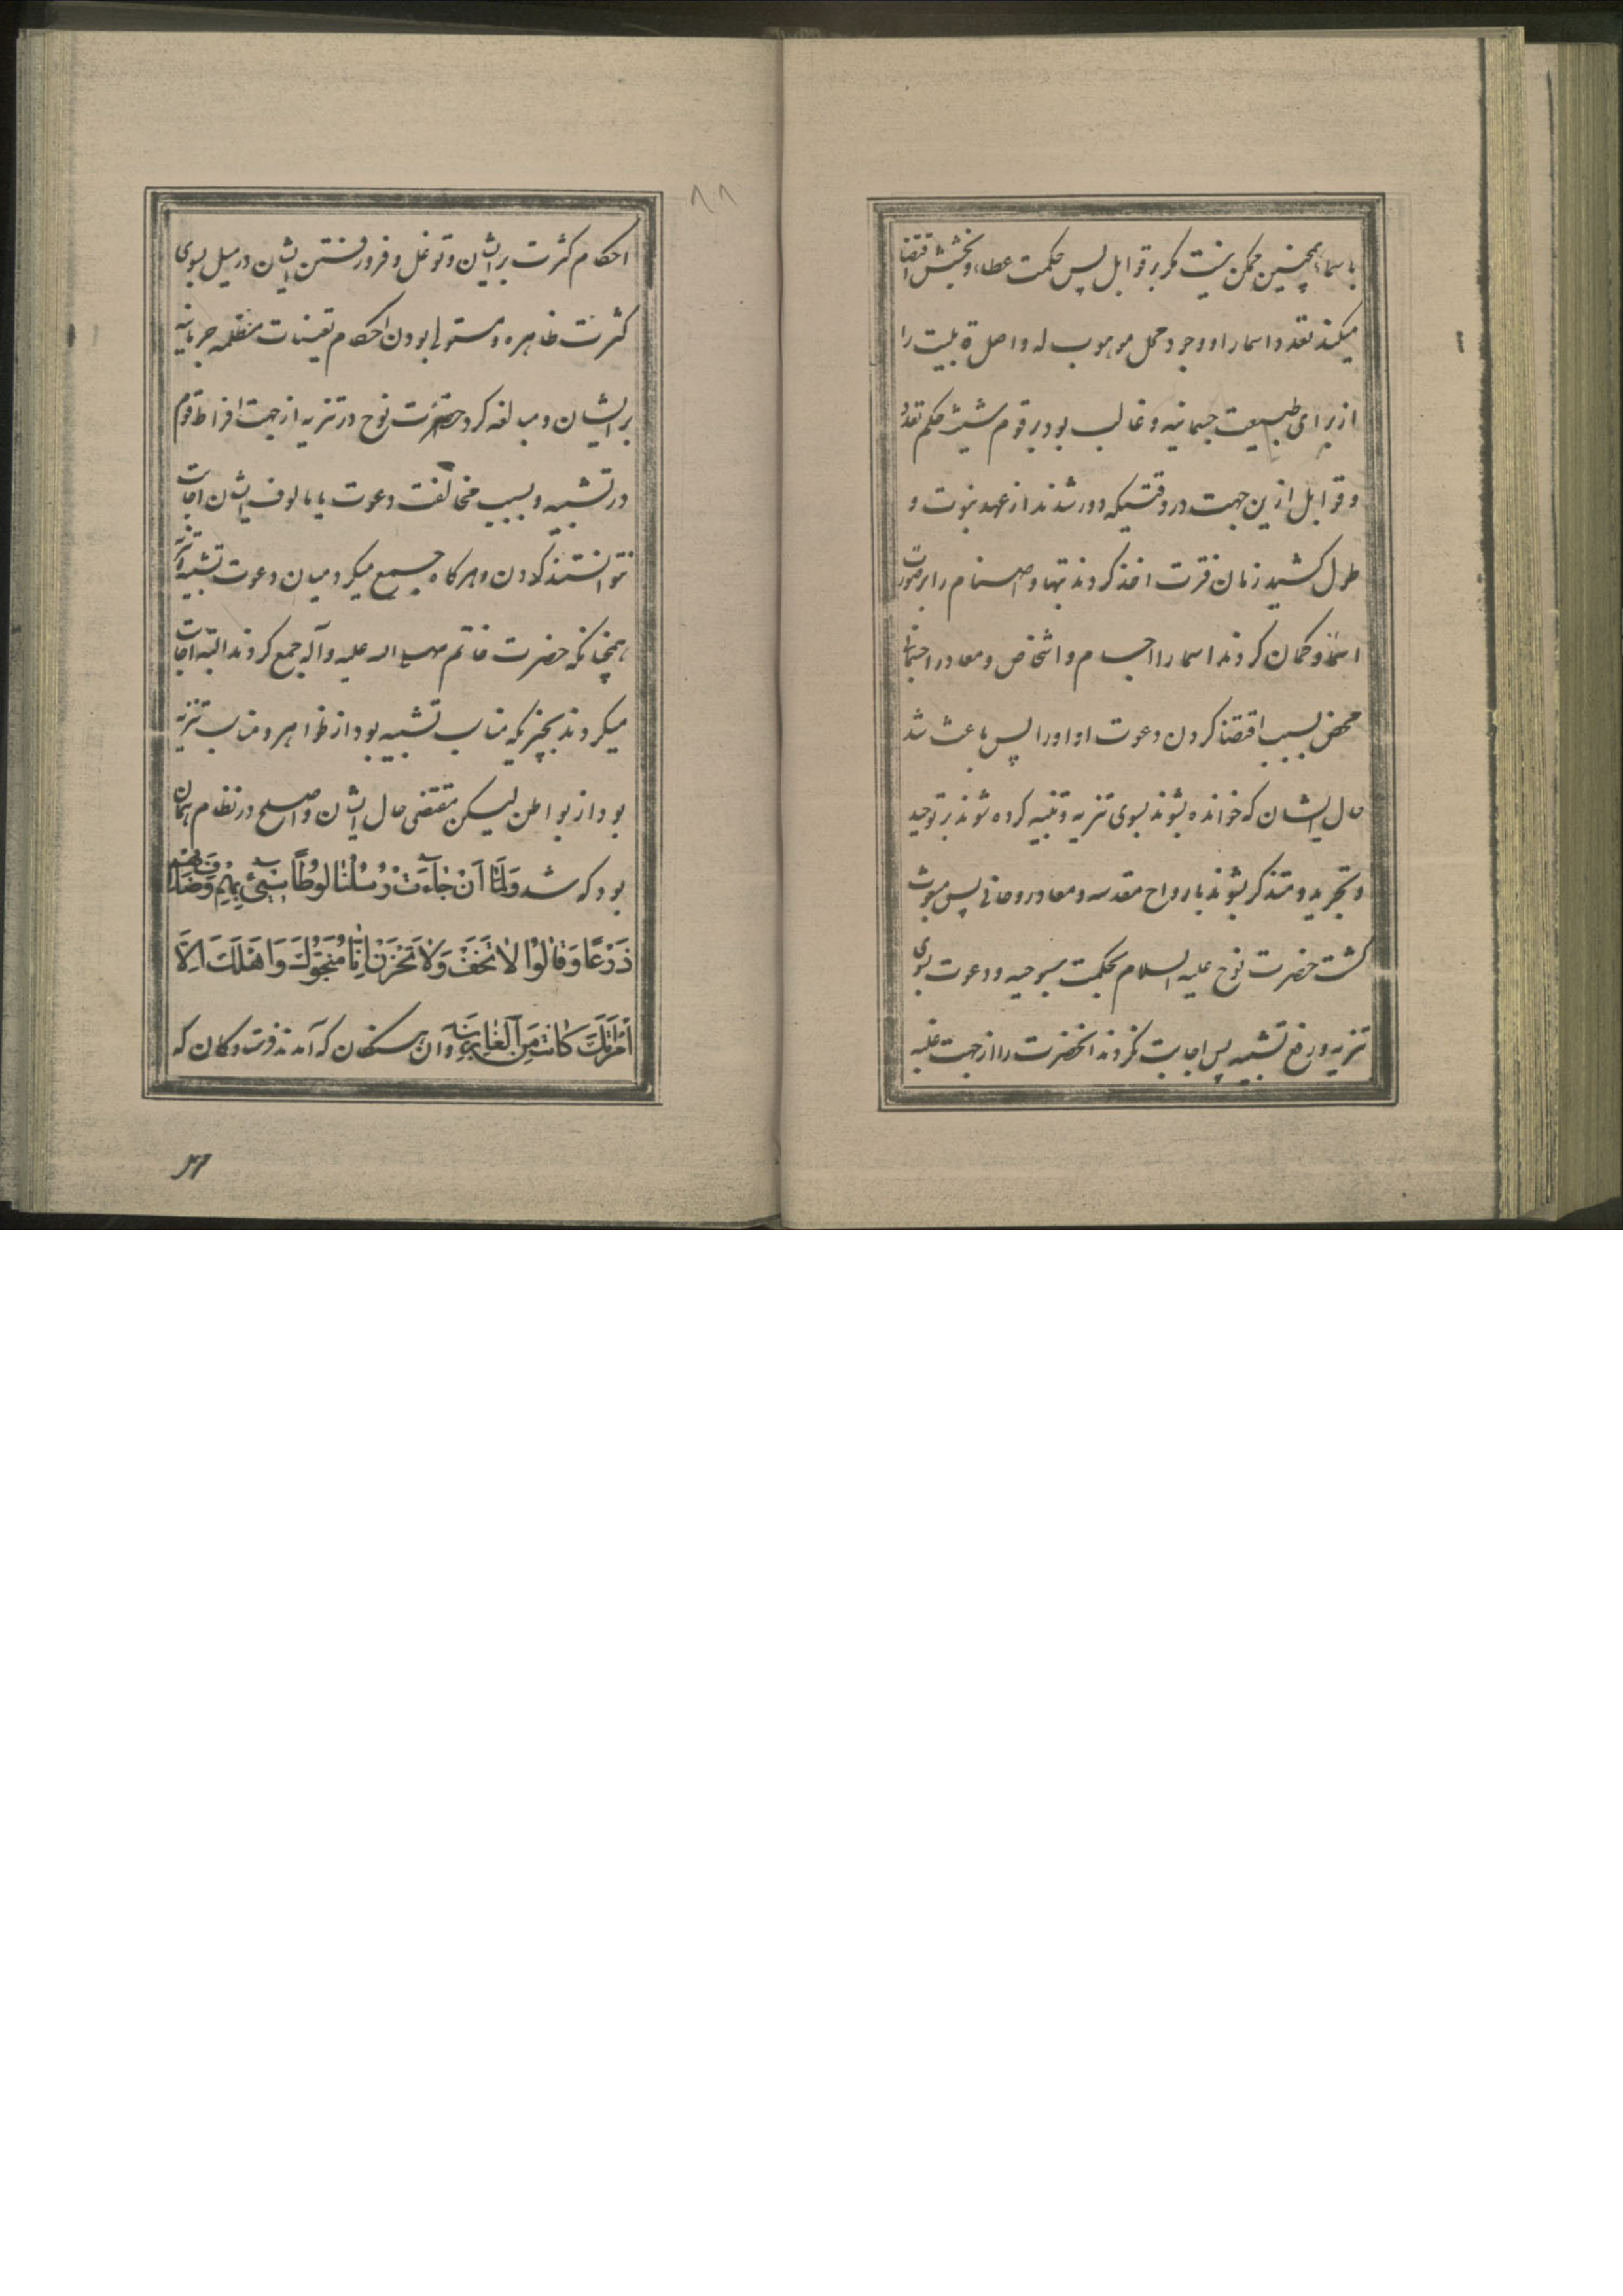 باسما، همچنین ممکن نیست مکر بر قوابل پس حکمت عطاء و بخشش اقتضا
میکند تعدد اسما را و وجود محل موهوب له و اصل قابلیت را
از برای طبیعت جسمانیه و غالب بود بر قوم شیث حکم تعدد
و قوابل ازین جهت در وقتیکه دور شدند از عهد نبوت و
طول کشید زمان فترت اخذ کردند بتها و اصنام را بر صورت
اسما و کمان کردند اسما را اجسام و اشخاص و معاد را جسمانی
محض بسبب اقتضا کردن دعوت او اورا پس باعث شد
حال ایشان که خوانده بشوند بسوی تنزیه و تنبیه کرده شوند بر توحید
و تجرید و متذکر بشوند بارواح مقدسه و معاد روحانی پس مبعوث
کشت حضرت نوح علیه السلام بحکمت سبوحیه و دعوت بسوی
تنزیه و رفع تشبیه پس اجابت نکردند انحضرت را از جهت غلبه
احکام کثرت بر ایشان و توغل و فرو رفتن ایشان در میل بسوی
کثرت ظاهره و مستولی بودن احکام تعینات مظلمه جرمانیه
بر ایشان و مبالغه کرد حضرت نوح در تنزیه از جهت افراط قوم
در تشبیه و بسبب مخالفت دعوت با مالوف ایشان اجابت
نتوانستند کردن و هرکاه جمع میکرد میان دعوت تشبیه و تنزیه
همچنانکه حضرت خاتم صلی الله علیه و آله جمع کردند البته اجابت
میکردند بچیزیکه مناسب تشبیه بود از ظواهر و مناسب تنزیه
بود از بواطن لیکن مقتضی حال ایشان و اصلح در نظام همان
بود که شد وَلَمَّا اَنْ جَاءَتْ رُسُلُنَا لُوطًا سِیءَ بِهِمْ وَضَاقَ بِهِمْ
ذَرْعًا وَقَالُوا لَا تَخَفْ وَلَا تَحْزَنْ اِنَّا مُنَجُّوكَ وَاَهْلَكَ اِلَّا
اَمْرَاَتَكَ كَانَتْ مِنَ الْغَابِرِينَ و آن سنکان که آمدند فرشتکان که